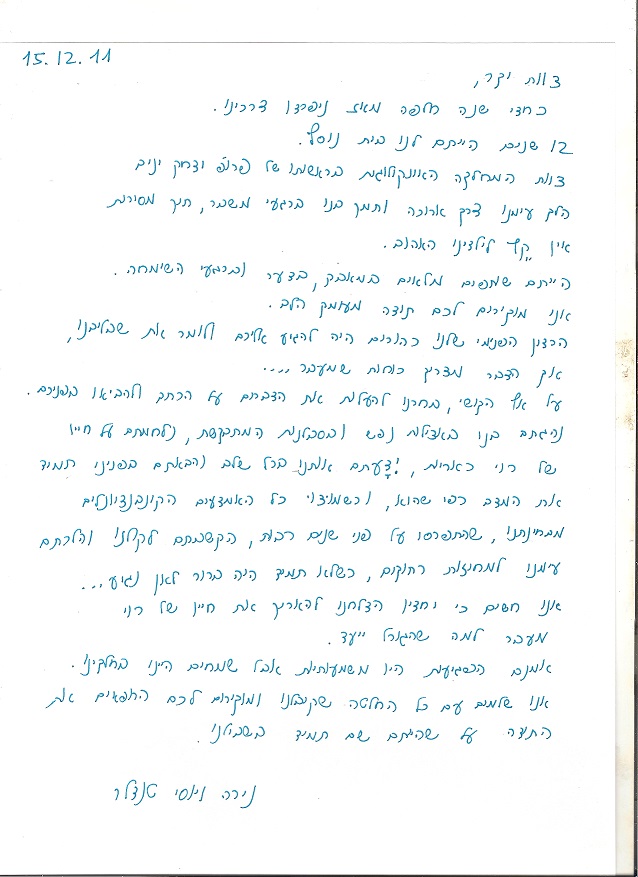 15.12.11
צוות יקר,
כחצי שנה חלפה מאז ניפרדו דרכינו.
12 שנים הייתם לנו בית נוסף.
צוות המחלקה האונקולוגית בראשותו של פרופ' יצחק יניב
הלך עימנו דרך ארוכה ותמך בנו ברגעי משבר, תוך מסירות
אין קץ לילדינו האהוב.
הייתם שותפים מלאים במאבק, בצער וברגעי השימחה.
אנו מוקירים לכם תודה מעומק הלב.
הרצון הפנימי שלנו כהורים היה להגיע אליכם ולומר את שבליבנו,
אך הדבר מצריך כוחות שמעבר....
על אף הקושי, בחרנו להעלות את הדברים על הכתב ולהביאו בפניכם.
נהגתם בנו באצילות נפש ובסבלנות המתבקשת, נלחמתם על חייו
של רוני כאריות, יידעתם אותנו בכל שלב והבאתם בפנינו תמיד
את המצב כפי שהוא, וכשמיצוי כל האמצעים הקונבנציונלים
מבחינתנו, שהתפרסו על פני שנים רבות, הקשבתם לקולנו והלכתם
עימנו למחוזות רחוקים, כשלא תמיד היה ברור לאן נגיע...
אנו חשים כי יחדיו הצלחנו להאריך את חייו של רוני
מעבר למה שהגורל ייעד.
אומנם הפגיעות היו משמעותיות אבל שמחים היינו בחלקינו.
אנו שלמים עם כל החלטה שקיבלנו ומוקירים לכם הרופאים את
התודה על שהייתם שם תמיד בשבילנו.
נירה ויוסי טנצלר